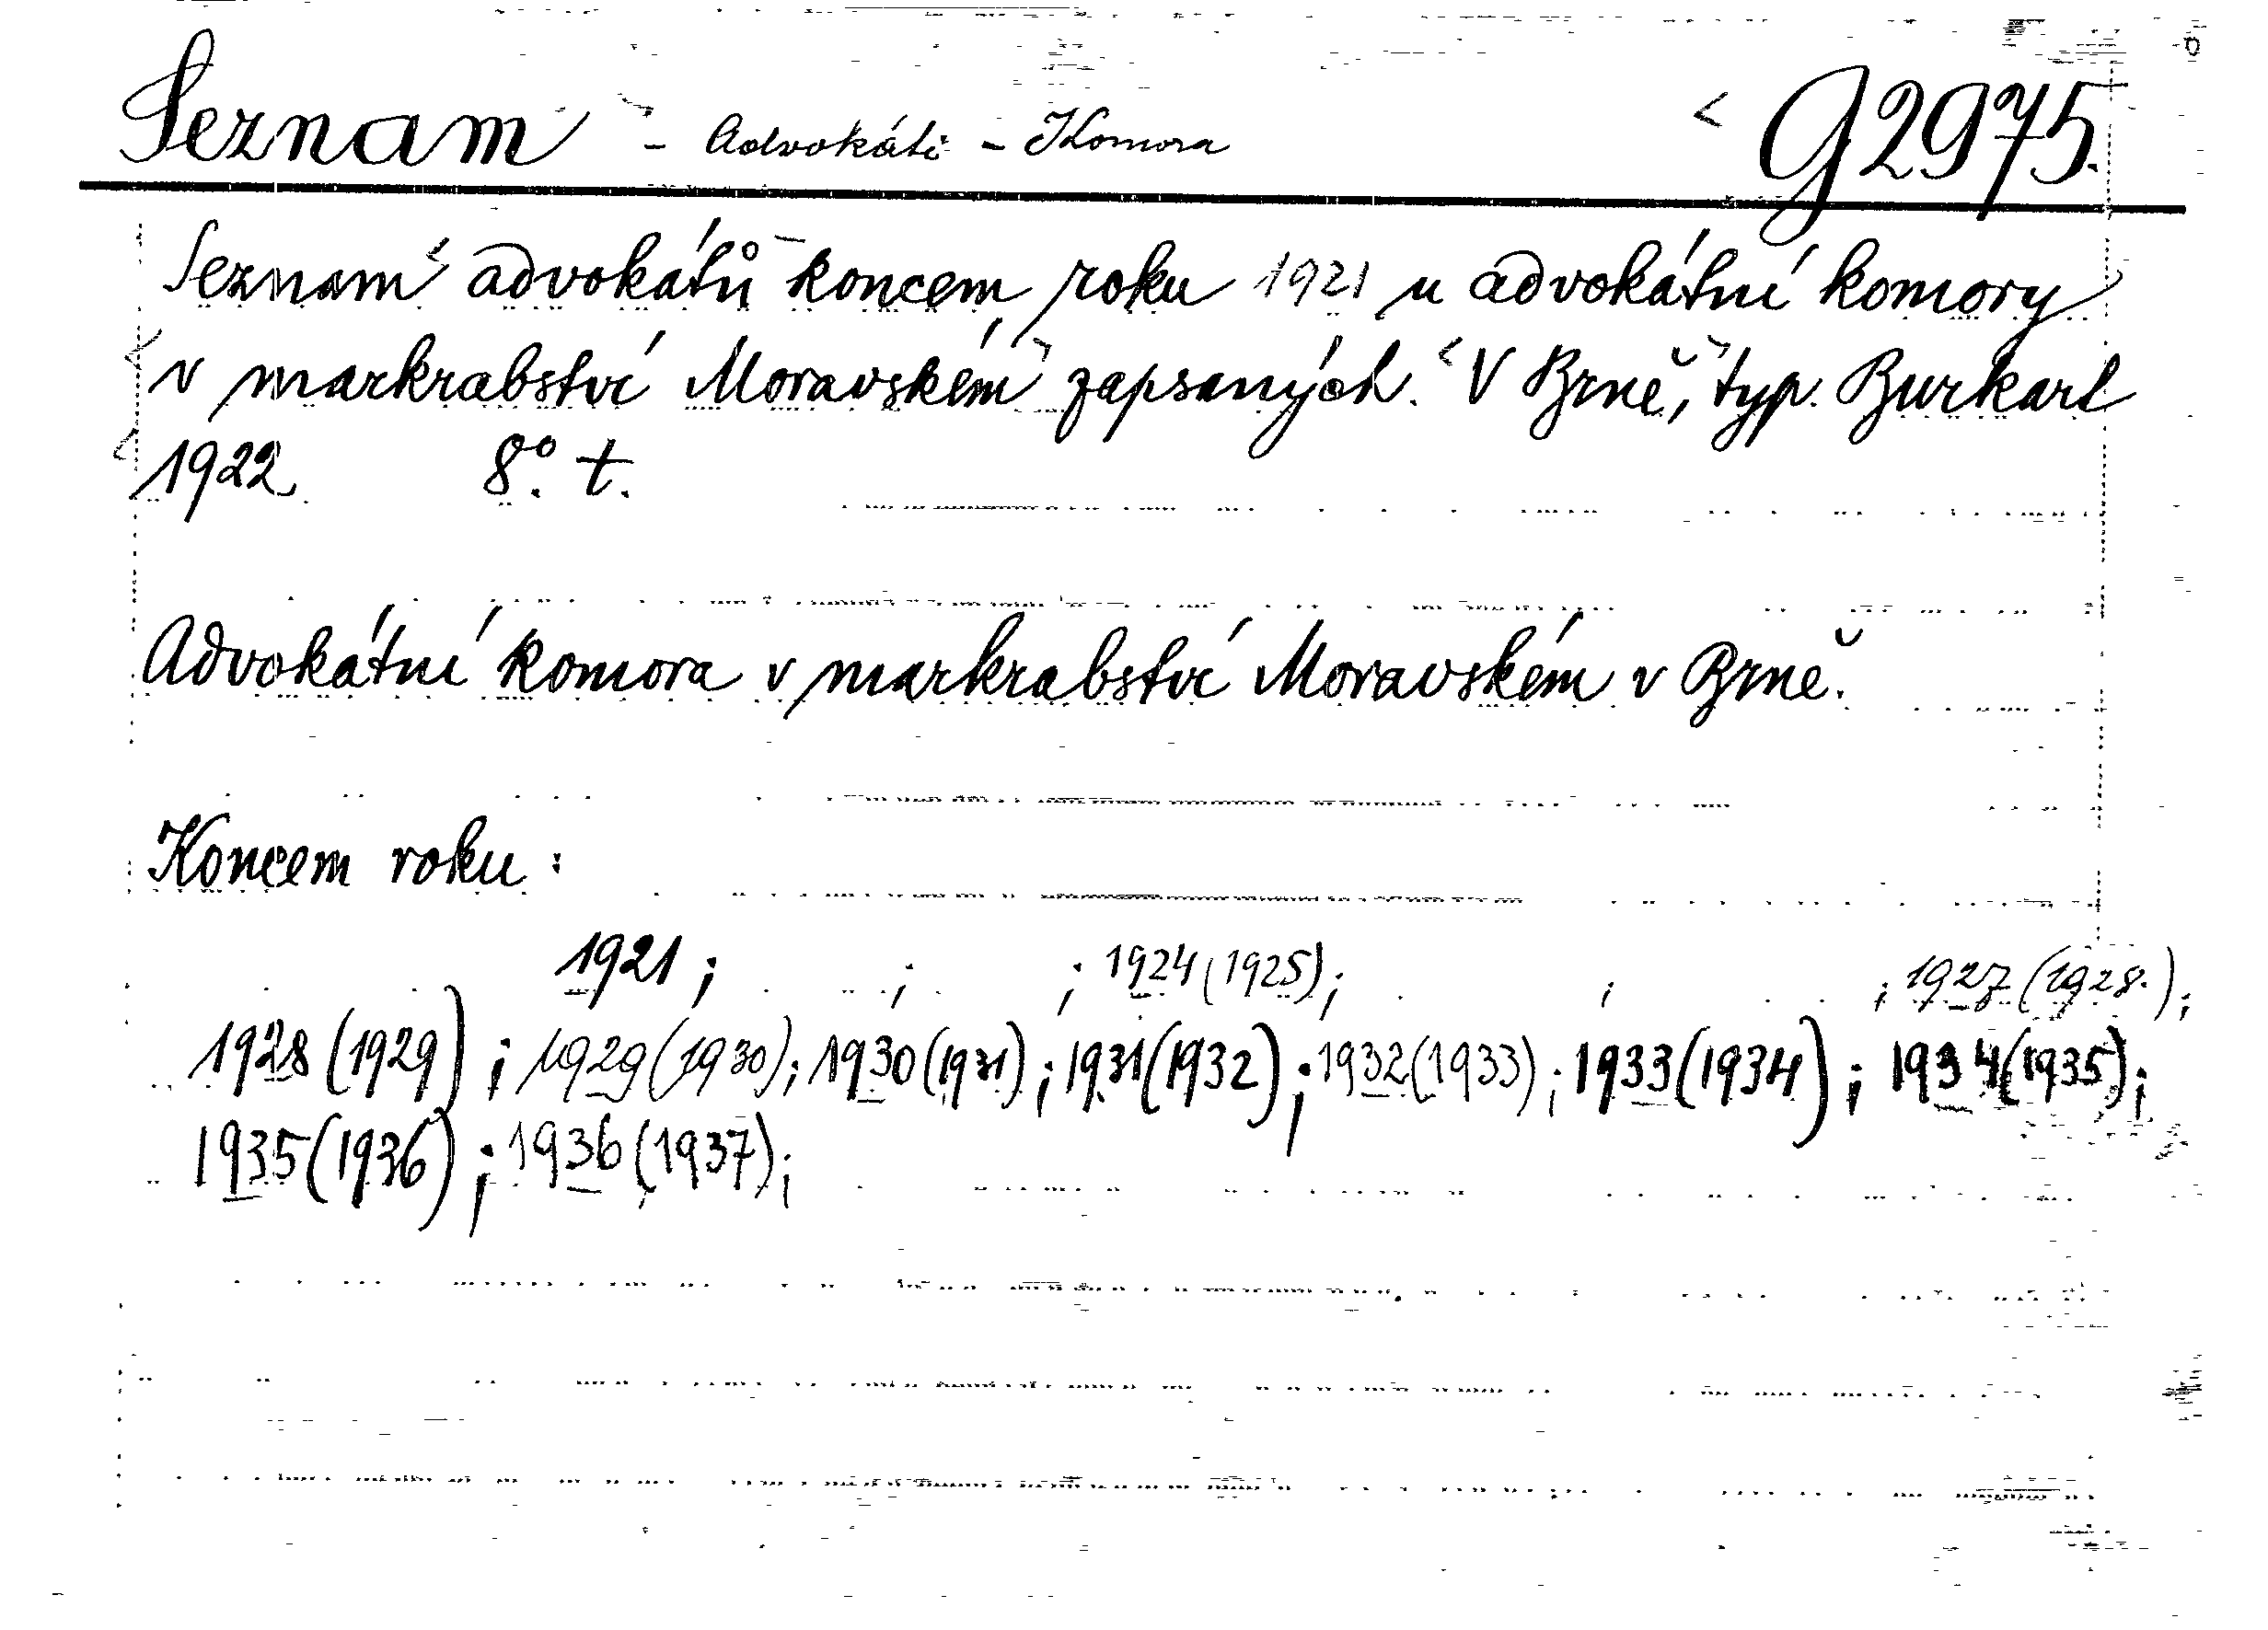 Seznam - Advokáti - Komora G2975.
Seznam advokátů koncem roku 1921 u advokátní komory
v markrabství Moravském zapsaných. V Brně, typ. Burkart
1922 8° t.
Advokátní komora v markrabství Moravském v Brně.
Koncem roku:
1921; ; ; 1924 (1925); ; ; 1927 (1928.);
1928 (1929); 1929 (1930); 1930 (1931); 1931 (1932); 1932 (1933); 1933 (1934); 1934 (1935);
1935 (1936); 1936 (1937);